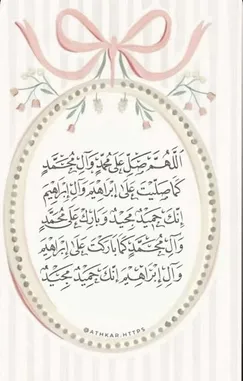 اللَّهُمَّ صَلِّ عَلَى مُحَمَّدٍ وَآلِ مُحَمَّدٍ
كَمَا صَلَّيْتَ عَلَى إِبْرَاهِيمَ وَآلِ إِبْرَاهِيمَ
إِنَّكَ حَمِيدٌ مَجِيدٌ، وَبَارِكْ عَلَى مُحَمَّدٍ
وَآلِ مُحَمَّدٍ كَمَا بَارَكْتَ عَلَى إِبْرَاهِيمَ
وَآلِ إِبْرَاهِيمَ إِنَّكَ حَمِيدٌ مَجِيدٌ
@ATHKAR.HTTPS